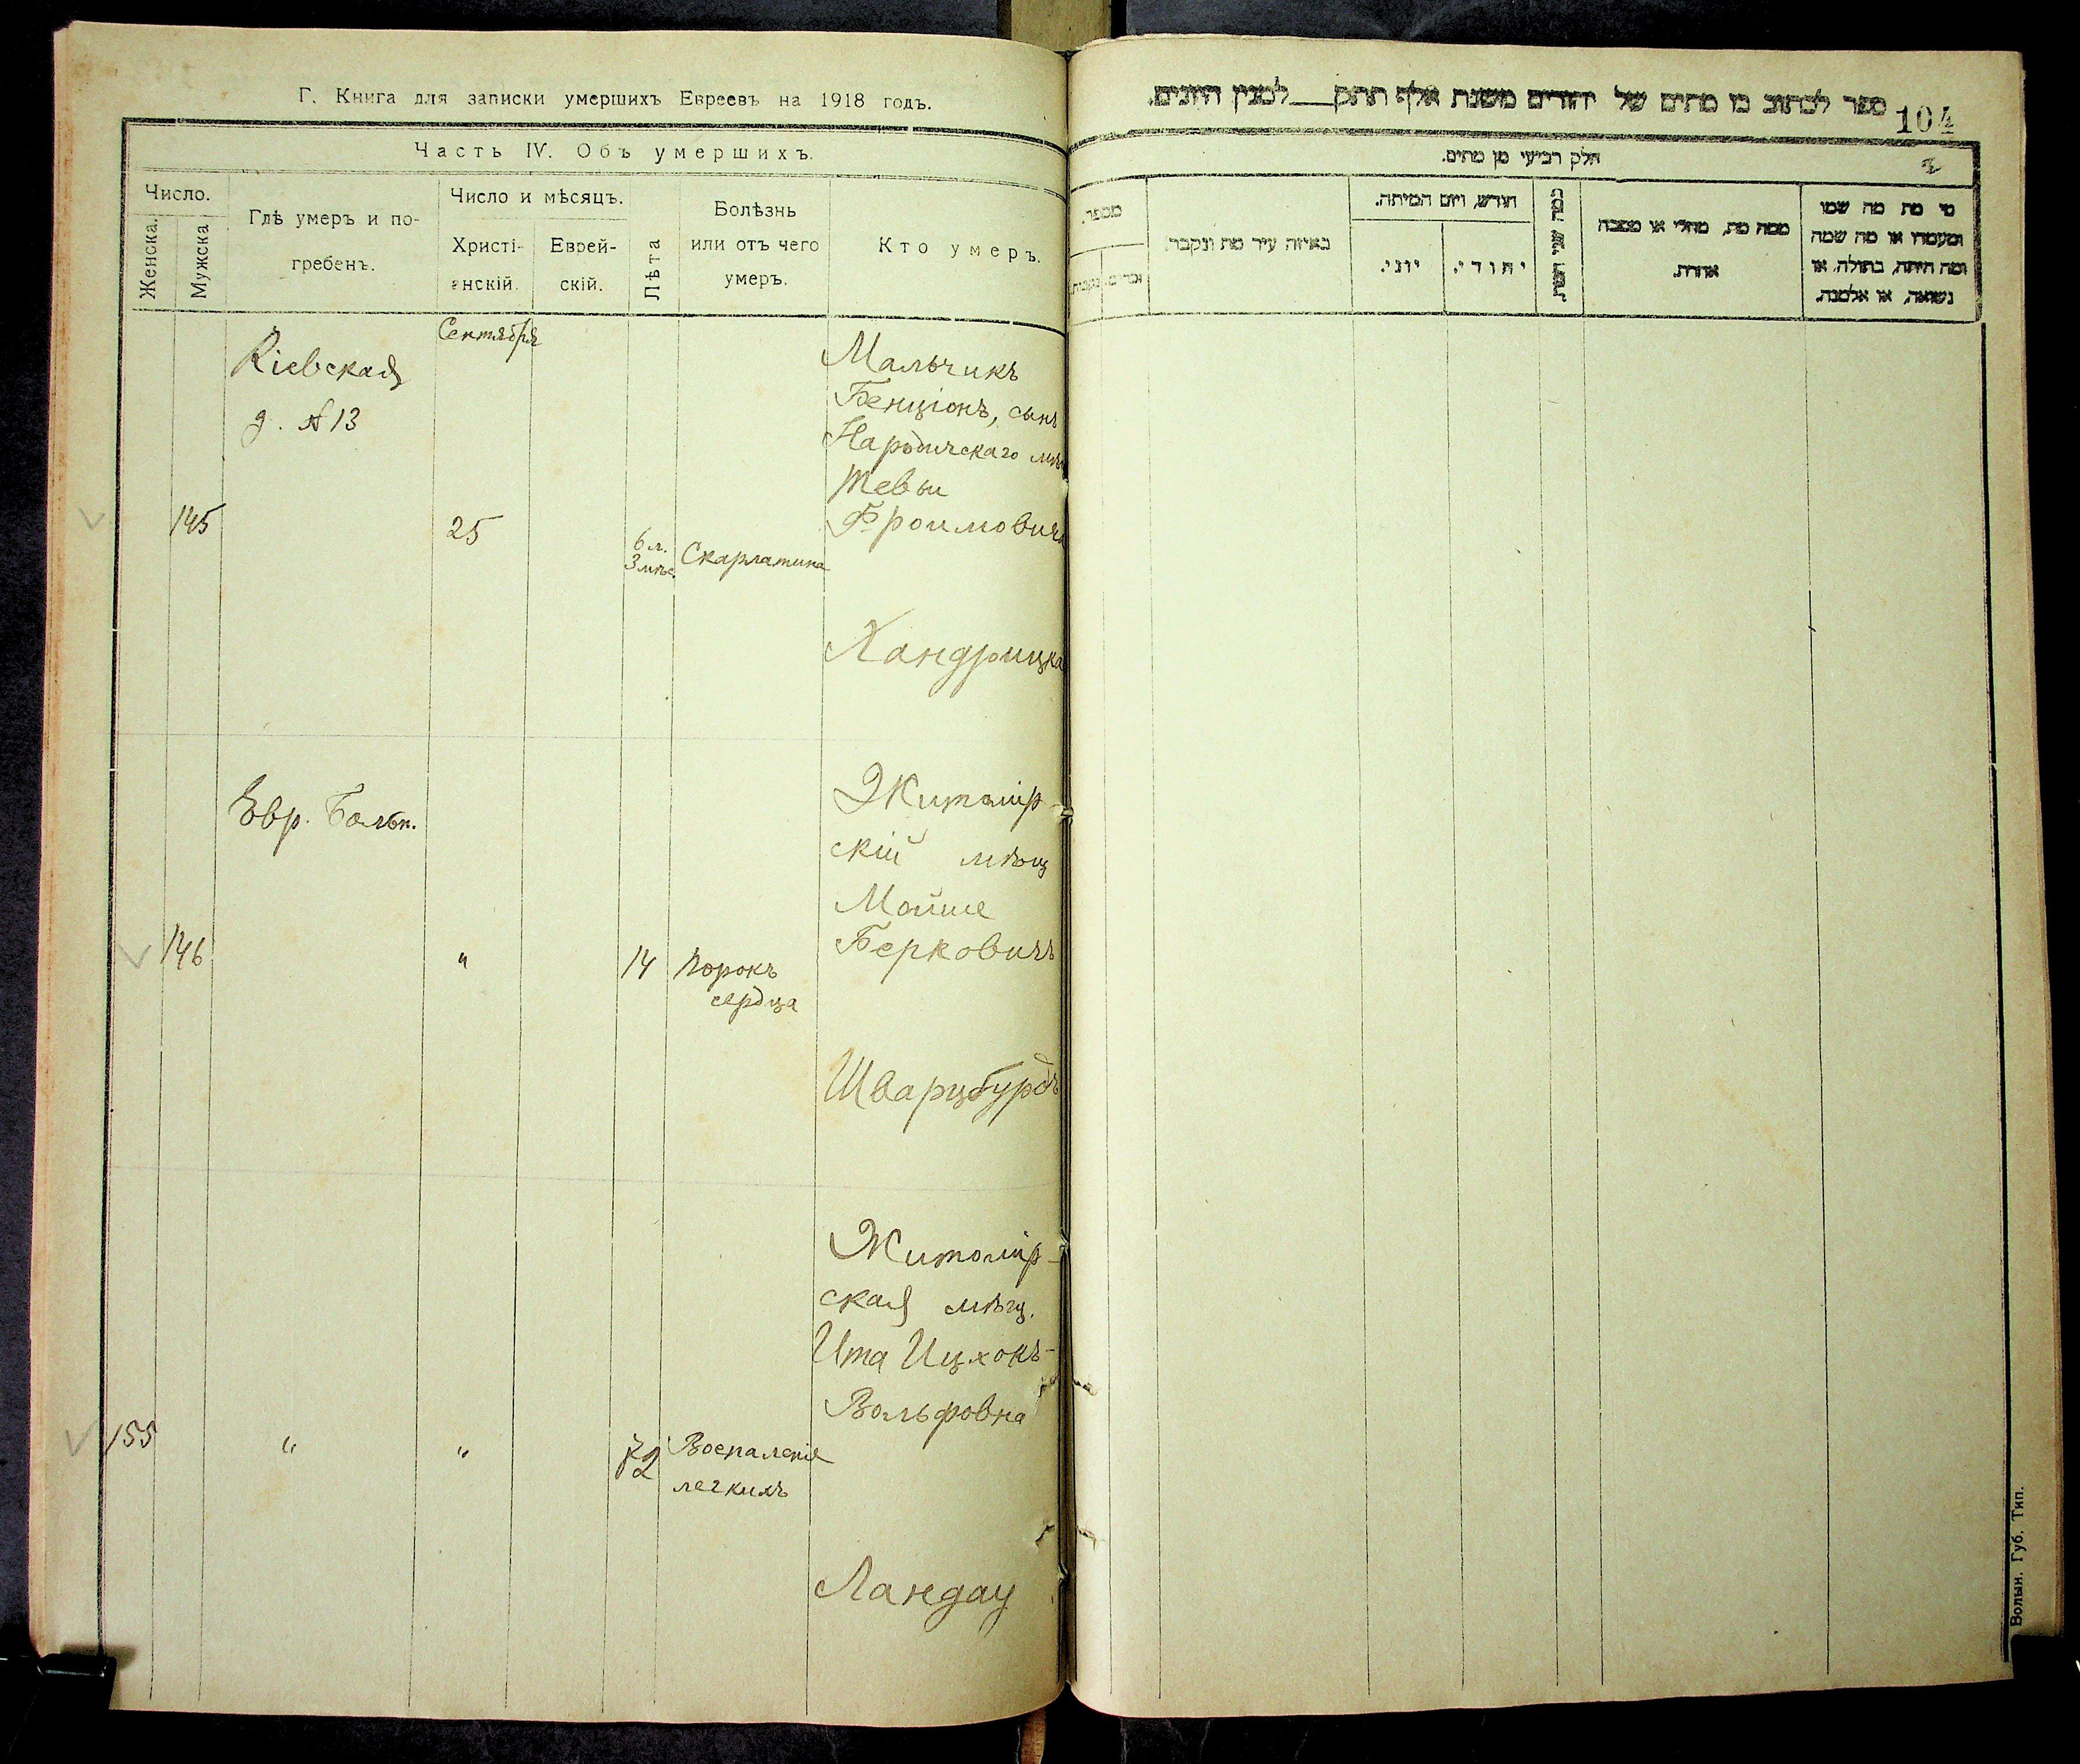 Г. Книга для записки умершихъ Евреевъ на 1918 годъ.
Часть IV. Объ умершихъ.
Число.
Женска.
Мужска
Гдѣ умеръ и по-
гребенъ.
Число и мѣсяцъ.
Христі-
анскій.
Еврей-
скій.
Лѣта
Болѣзнь
или отъ чего
умеръ.
Кто умеръ.
Сентября
Кіевская
д. №13
145
25
6 л.
3 мѣс.
Скарлатина
Мальчикъ
Бенціонъ, сынъ
Народичскаго мѣщ
Тевы
Фроимовича
Хандрицка
Евр. Больн.
146
"
14
Порокъ
сердца
Житомір-
скій мѣщ
Мойше
Берковичъ
Шварцбурдъ
155
"
"
72
Воспаленіе
легкихъ
Житомір-
ская мѣщ.
Ита Ицхокъ-
Вольфовна
Ландау
ספר לכתוב מן מתים של יהודים משנת אלף תתק___למנין היונים.
104
חלק רביעי מן מתים.
מי מת מה שמו
ומעמדו או מה שמה
ומה היתה, בתולה, או
נשואה, או אלמנה.
ממה מת, מחלי או מסבה
אחרת.
כמה שני חיותו
חודש, ויום המיתה.
יהודי.
יוני.
באיזה עיר מת ונקבר.
מספר.
זכרים
נקבות
Волын. Губ. Тип.